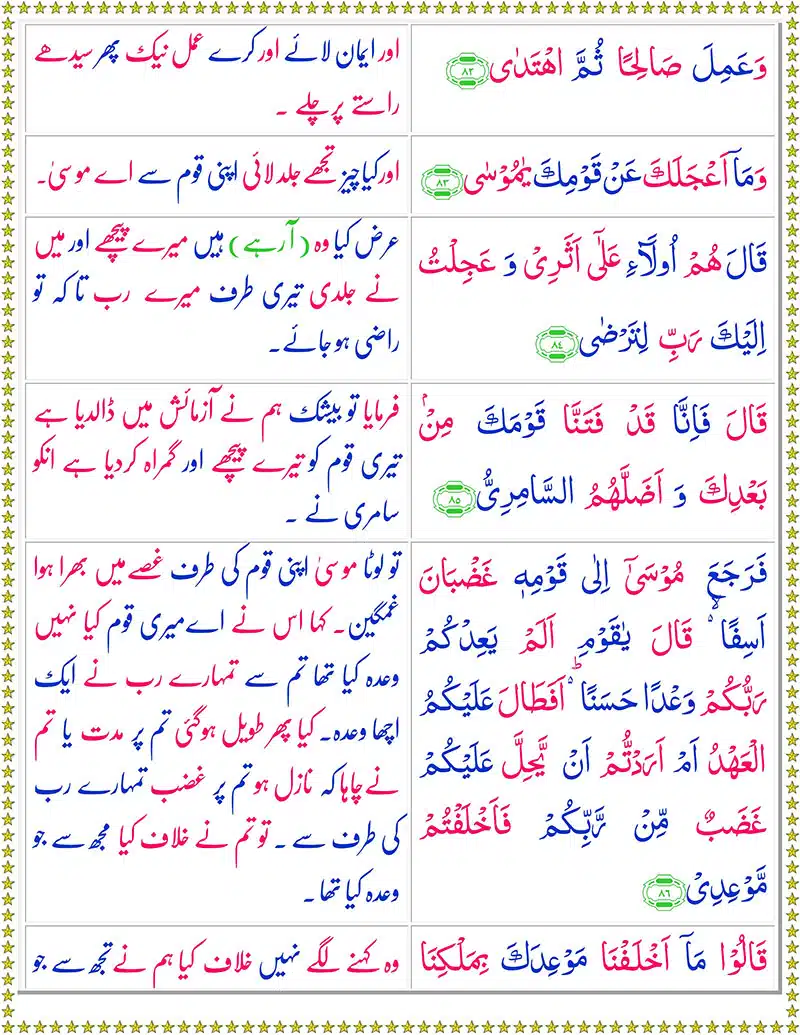 وَعَمِلَ صَالِحًا ثُمَّ اهْتَدٰى ﴿۸۲﴾
اور ایمان لائے اور کرے عمل نیک پھر سیدھے
راستے پر چلے ۔
وَمَآ اَعْجَلَكَ عَنْ قَوْمِكَ يٰمُوْسٰى ﴿۸۳﴾
اور کیا چیز تجھے جلد لائی اپنی قوم سے اے موسیٰ۔
قَالَ هُمْ اُولَآءِ عَلٰٓى اَثَرِىْ وَ عَجِلْتُ
اِلَيْكَ رَبِّ لِتَرْضٰى ﴿۸۴﴾
عرض کیا وہ (آ رہے) ہیں میرے پیچھے اور میں
نے جلدی تیری طرف میرے رب تا کہ تو
راضی ہو جائے۔
قَالَ فَاِنَّا قَدْ فَتَنَّا قَوْمَكَ مِنْۢ
بَعْدِكَ وَ اَضَلَّهُمُ السَّامِرِىُّ ﴿۸۵﴾
فرمایا تو بیشک ہم نے آزمائش میں ڈالدیا ہے
تیری قوم کو تیرے پیچھے اور گمراہ کر دیا ہے انکو
سامری نے ۔
فَرَجَعَ مُوْسٰٓى اِلٰى قَوْمِهٖ غَضْبَانَ
اَسِفًا ۚ قَالَ يٰقَوْمِ اَلَمْ يَعِدْكُمْ
رَبُّكُمْ وَعْدًا حَسَنًا ؕ اَفَطَالَ عَلَيْكُمُ
الْعَهْدُ اَمْ اَرَدْتُّمْ اَنْ يَّحِلَّ عَلَيْكُمْ
غَضَبٌ مِّنْ رَّبِّكُمْ فَاَخْلَفْتُمْ
مَّوْعِدِىْ ﴿۸۶﴾
تو لوٹا موسیٰ اپنی قوم کی طرف غصے میں بھرا ہوا
غمگین۔ کہا اس نے اے میری قوم کیا نہیں
وعدہ کیا تھا تم سے تمہارے رب نے ایک
اچھا وعدہ۔ کیا پھر طویل ہوگئی تم پر مدت یا تم
نے چاہا کہ نازل ہو تم پر غضب تمہارے رب
کی طرف سے ۔ تو تم نے خلاف کیا مجھ سے جو
وعدہ کیا تھا۔
قَالُوْا مَآ اَخْلَفْنَا مَوْعِدَكَ بِمَلْكِنَا
وہ کہنے لگے نہیں خلاف کیا ہم نے تجھ سے جو